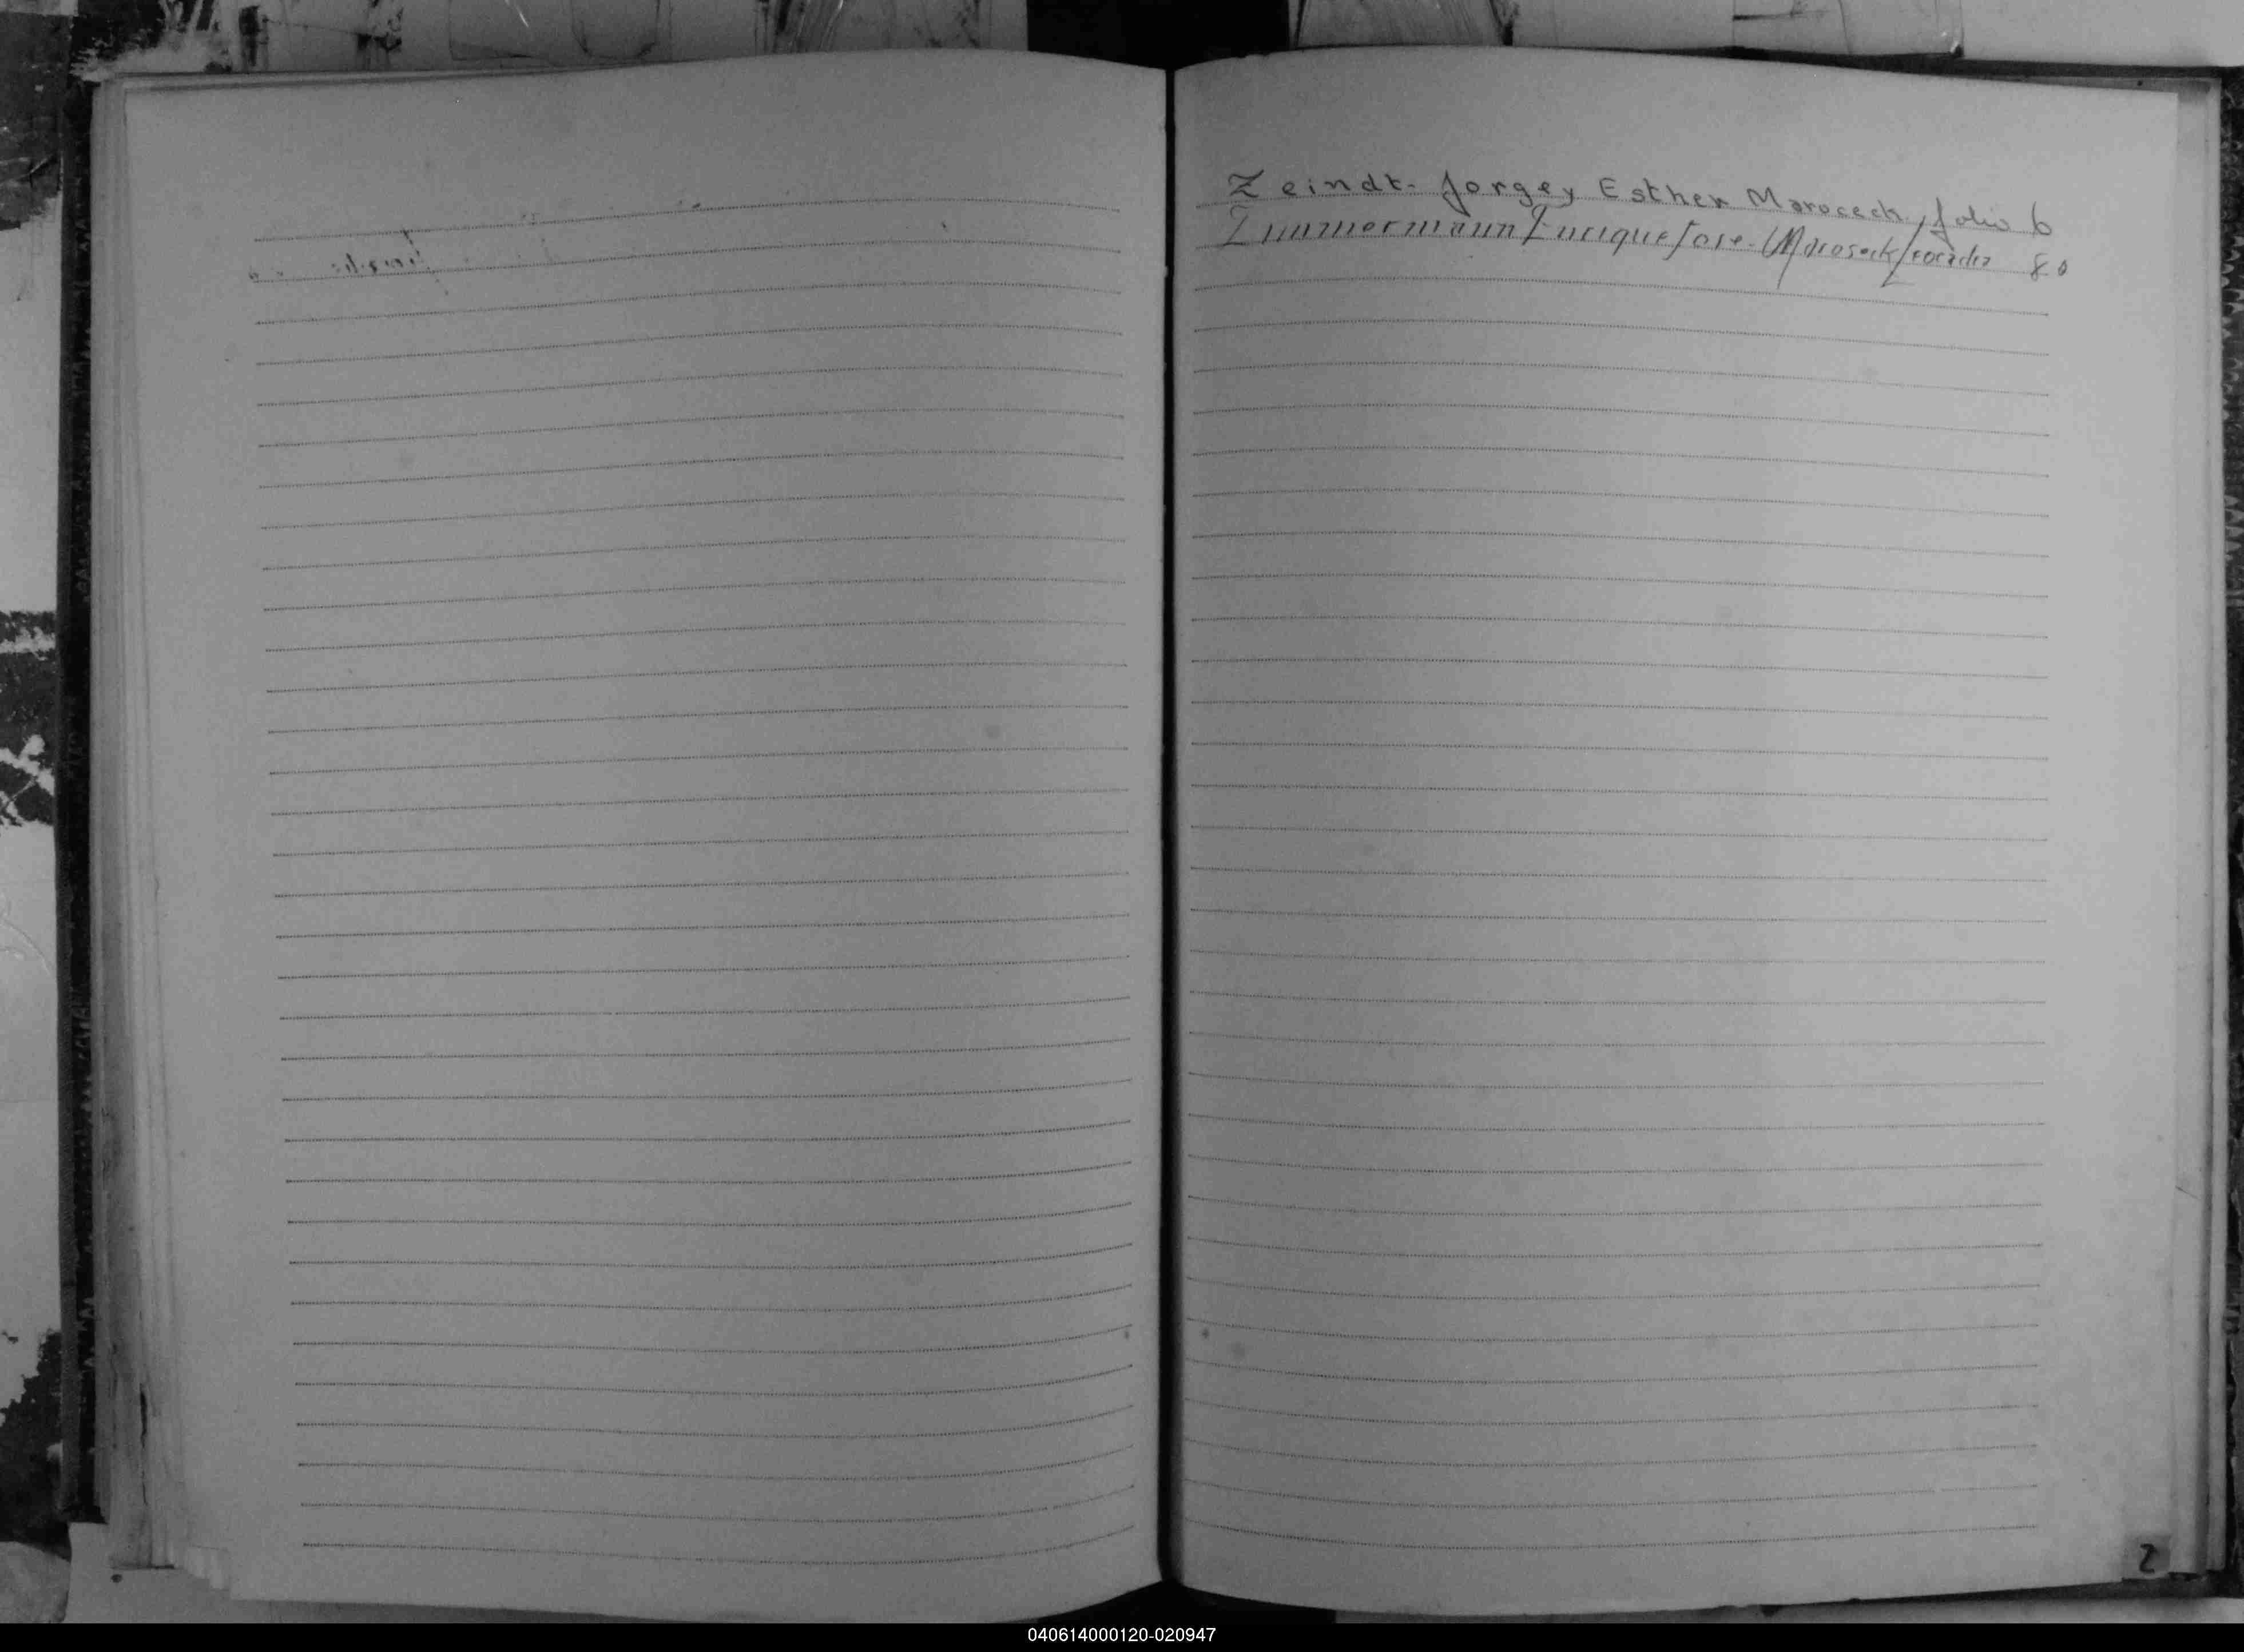 Zeindt. Jorge y Esther Maroceck, folio 6
Zimmermann Enrique Jose - Maroseck Leocadia 80
Z
040614000120-020947